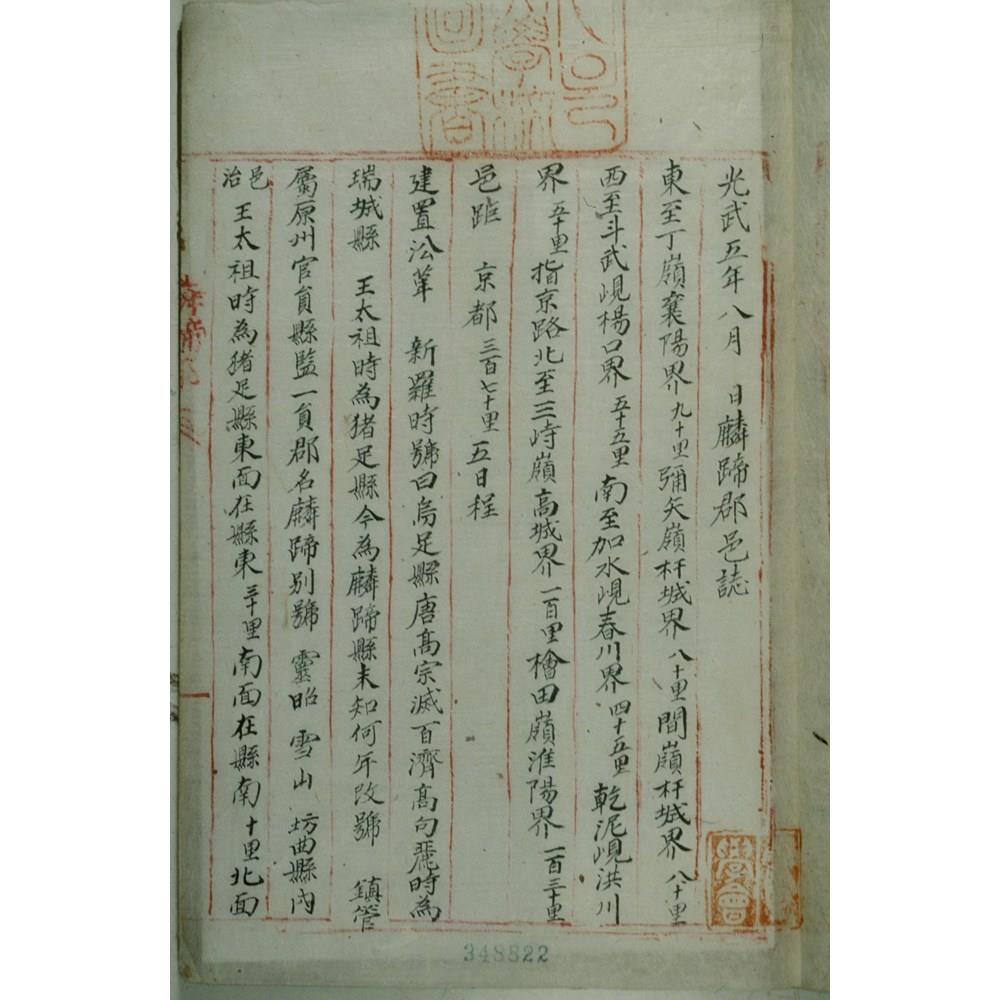 光武五年八月 日麟蹄郡邑誌
東至丁嶺襄陽界九十里彌矢嶺杆城界八十里間嶺杆城界八十里
西至斗武峴楊口界五十五里南至加水峴春川界四十五里乾泥峴洪川
界五十里指京路北至三峙嶺高城界一百里檜田嶺淮陽界一百三十里
邑距 京都三百七十里五日程
建置沿革 新羅時號曰烏足縣唐高宗滅百濟高句麗時為
瑞城縣 王太祖時為猪足縣今為麟蹄縣未知何年改號 鎮管
屬原州官員縣監一員郡名麟蹄別號 靈昭 雪山 坊曲縣內
邑治 王太祖時為猪足縣東面在縣東三十里南面在縣南十里北面
348822